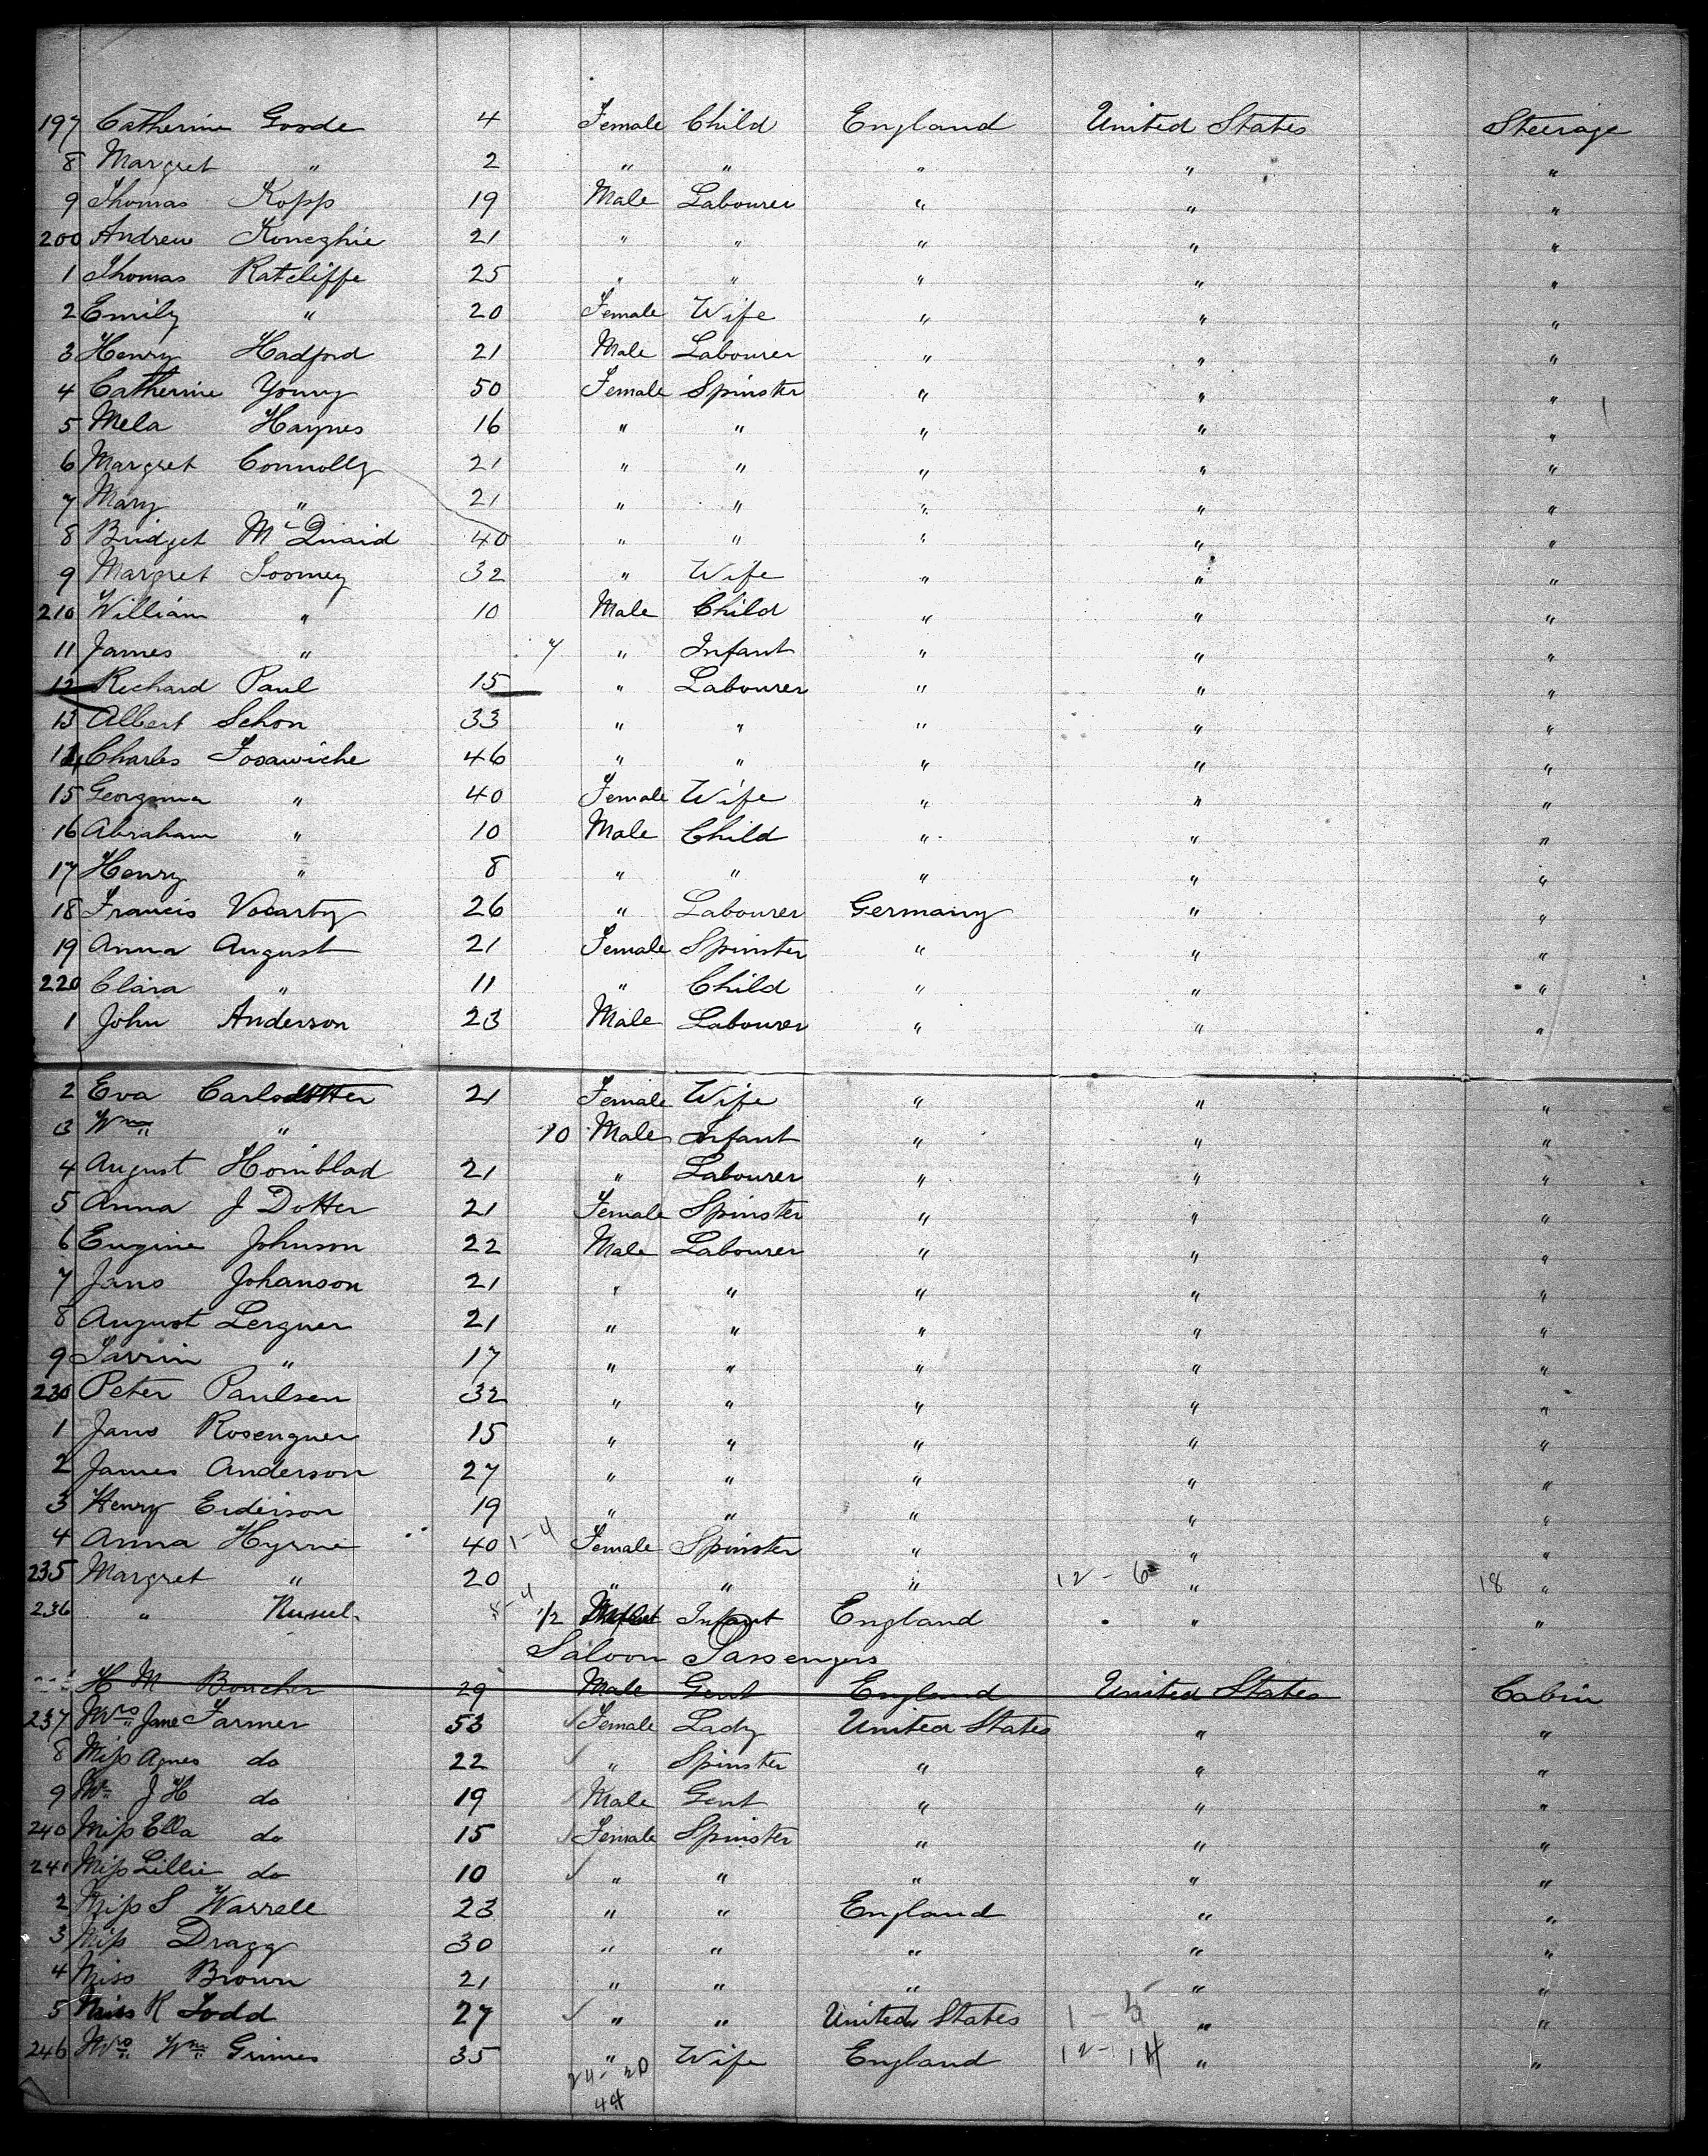 197 Catherine Goode 4 Female Child England United States Steerage
8 Margret " 2 " " " " "
9 Thomas Kopp 19 Male Labourer " " "
200 Andrew Koneghie 21 " " " " "
1 Thomas Ratcliffe 25 " " " " "
2 Emily " 20 Female Wife " " "
3 Henry Hadford 21 Male Labourer " " "
4 Catherine Young 50 Female Spinster " " "
5 Mela Haynes 16 " " " " "
6 Margret Connolly 21 " " " " "
7 Mary " 21 " " " " "
8 Bridget McQuaid 40 " " " " "
9 Margret Toomey 32 " Wife " " "
210 William " 10 Male Child " " "
11 James " 7 " Infant " " "
12 Richard Paul 15 " Labourer " " "
13 Albert Schon 33 " " " " "
14 Charles Fosawiche 46 " " " " "
15 Georgina " 40 Female Wife " " "
16 Abraham " 10 Male Child " " "
17 Henry " 8 " " " " "
18 Francis Vocarty 26 " Labourer Germany " "
19 Anna August 21 Female Spinster " " "
220 Clara " 11 " Child " " "
1 John Anderson 23 Male Labourer " " "
2 Eva Carlodotter 21 Female Wife " " "
3 Wm " 10 Male Infant " " "
4 August Hornblad 21 " Labourer " " "
5 Anna J Dotter 21 Female Spinster " " "
6 Eugine Johnson 22 Male Labourer " " "
7 Jans Johanson 21 " " " " "
8 August Lerguer 21 " " " " "
9 " 17 " " " " "
230 Peter Paulsen 32 " " " " "
1 Jans Rosenguer 15 " " " " "
2 James Anderson 27 " " " " "
3 Henry Erderson 19 " " " " "
4 Anna Hyrne 40 1-4 Female Spinster " " "
235 Margret " 20 " " " 12 - 6 " 18 "
236 " 1/2 Infant England " "
Saloon Passengers
H M Boucher 29 Male Gent England United States Cabin
237 Mrs Jane Farmer 53 Female Lady United States " "
8 Miss Agnes do 22 " Spinster " " "
9 Mr J H do 19 Male Gent " " "
240 Miss Ella do 15 Female Spinster " " "
241 Miss Lillie do 10 " " " " "
2 Miss S Warrell 23 " " England " "
3 Miss Dragg 30 " " " " "
4 Miss Brown 21 " " " " "
5 Miss R Todd 27 " " United States " "
246 Mrs Wm Grimes 35 " Wife England " "
24 - 20
44